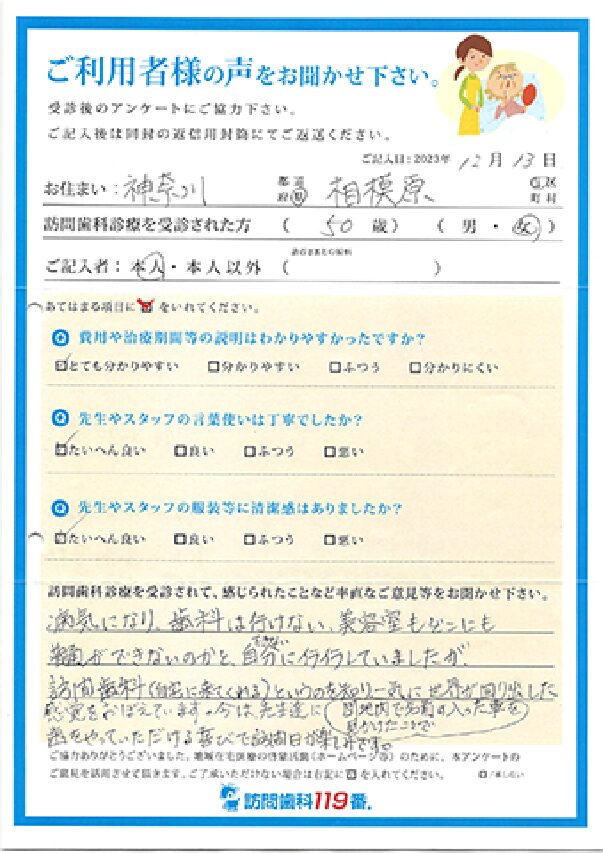 ご利用者様の声をお聞かせ下さい。
受診後のアンケートにご協力下さい。
ご記入後は同封の返信用封筒にてご返送ください。
ご記入日：2023年 12月 13日
お住まい：神奈川 都道府県 相模原 市区町村
訪問歯科診療を受診された方 （ 50 歳） （ 男・女 ）
ご記入者：本人・本人以外（ ）
あてはまる項目に をいれてください。
Q 費用や治療期間等の説明はわかりやすかったですか？
☑とても分かりやすい □分かりやすい □ふつう □分かりにくい
Q 先生やスタッフの言葉使いは丁寧でしたか？
☑たいへん良い □良い □ふつう □悪い
Q 先生やスタッフの服装等に清潔感はありましたか？
☑たいへん良い □良い □ふつう □悪い
訪問歯科診療を受診されて、感じられたことなど率直なご意見等をお聞かせ下さい。
病気になり、歯科は行けない、美容室もどこにも
ができないのかと、自分にイライラしていましたが、
訪問歯科(自宅に来てくれる)というのを知り一気に世界が回り出した
感覚をおぼえています。今は、先生達に
団地内で名前の入った車を
見かけたことで
歯をやっていただける喜びで訪問日が楽しみです。
ご協力ありがとうございました。地域在宅医療の啓蒙活動（ホームページ等）のために、本アンケートの
ご意見を活用させて頂きます。ご了承いただけない場合は右記に☑を入れてください。 □了承しない
訪問歯科119番.